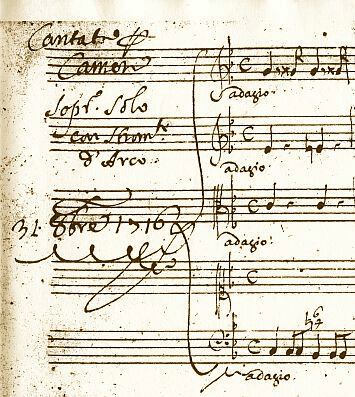 Cantata â p
Camera
Sopr.º Solo
con Strom.ti
d'Arco
31. 8bre 1716
adagio.
adagio.
adagio.
adagio.